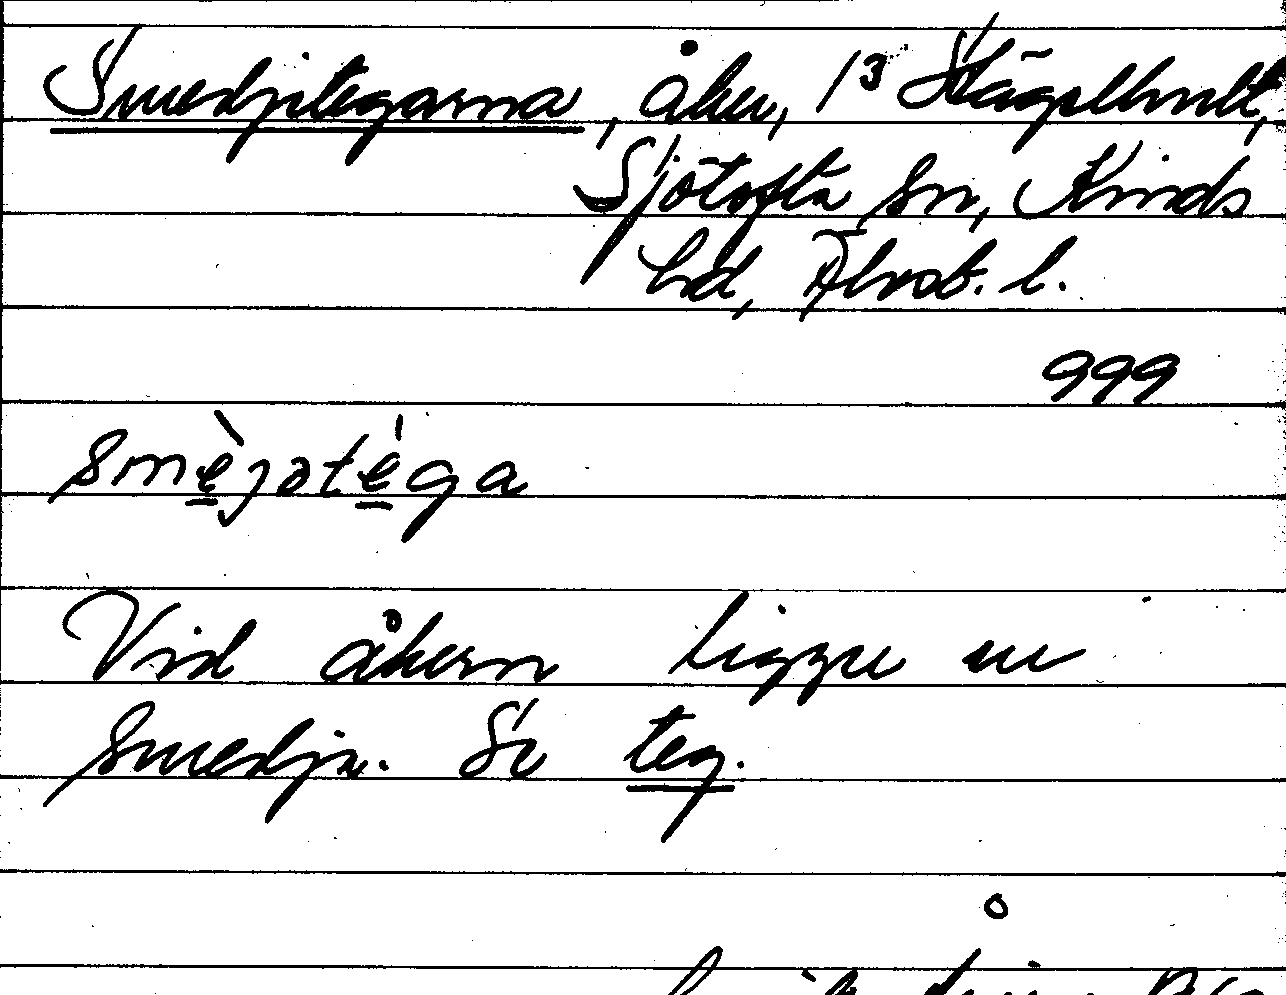 Smedjetegarna, åker, 1³ Hägelhult,
Sjötofta sn, Kinds
hd, Älvsb. l.
999
smèjətéga
Vid åkern ligger en
smedja. Se teg.